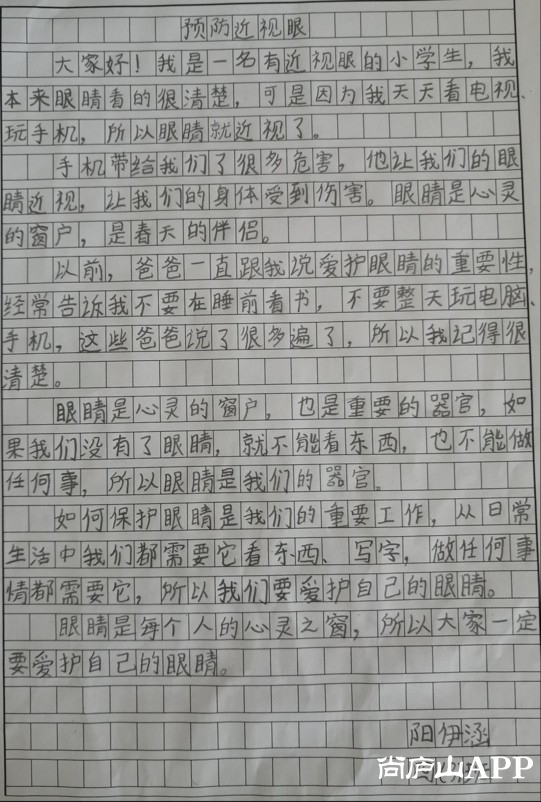 预防近视眼
大家好！我是一名有近视眼的小学生，我
本来眼睛看的很清楚，可是因为我天天看电视、
玩手机，所以眼睛就近视了。
手机带给我们了很多危害，他让我们的眼
睛近视，让我们的身体受到伤害。眼睛是心灵
的窗户，是春天的伴侣。
以前，爸爸一直跟我说爱护眼睛的重要性，
经常告诉我不要在睡前看书，不要整天玩电脑、
手机，这些爸爸说了很多遍了，所以我记得很
清楚。
眼睛是心灵的窗户，也是重要的器官，如
果我们没有了眼睛，就不能看东西，也不能做
任何事，所以眼睛是我们的器官。
如何保护眼睛是我们的重要工作，从日常
生活中我们都需要它看东西、写字，做任何事
情都需要它，所以我们要爱护自己的眼睛。
眼睛是每个人的心灵之窗，所以大家一定
要爱护自己的眼睛。
阳伊涵
尚庐山APP